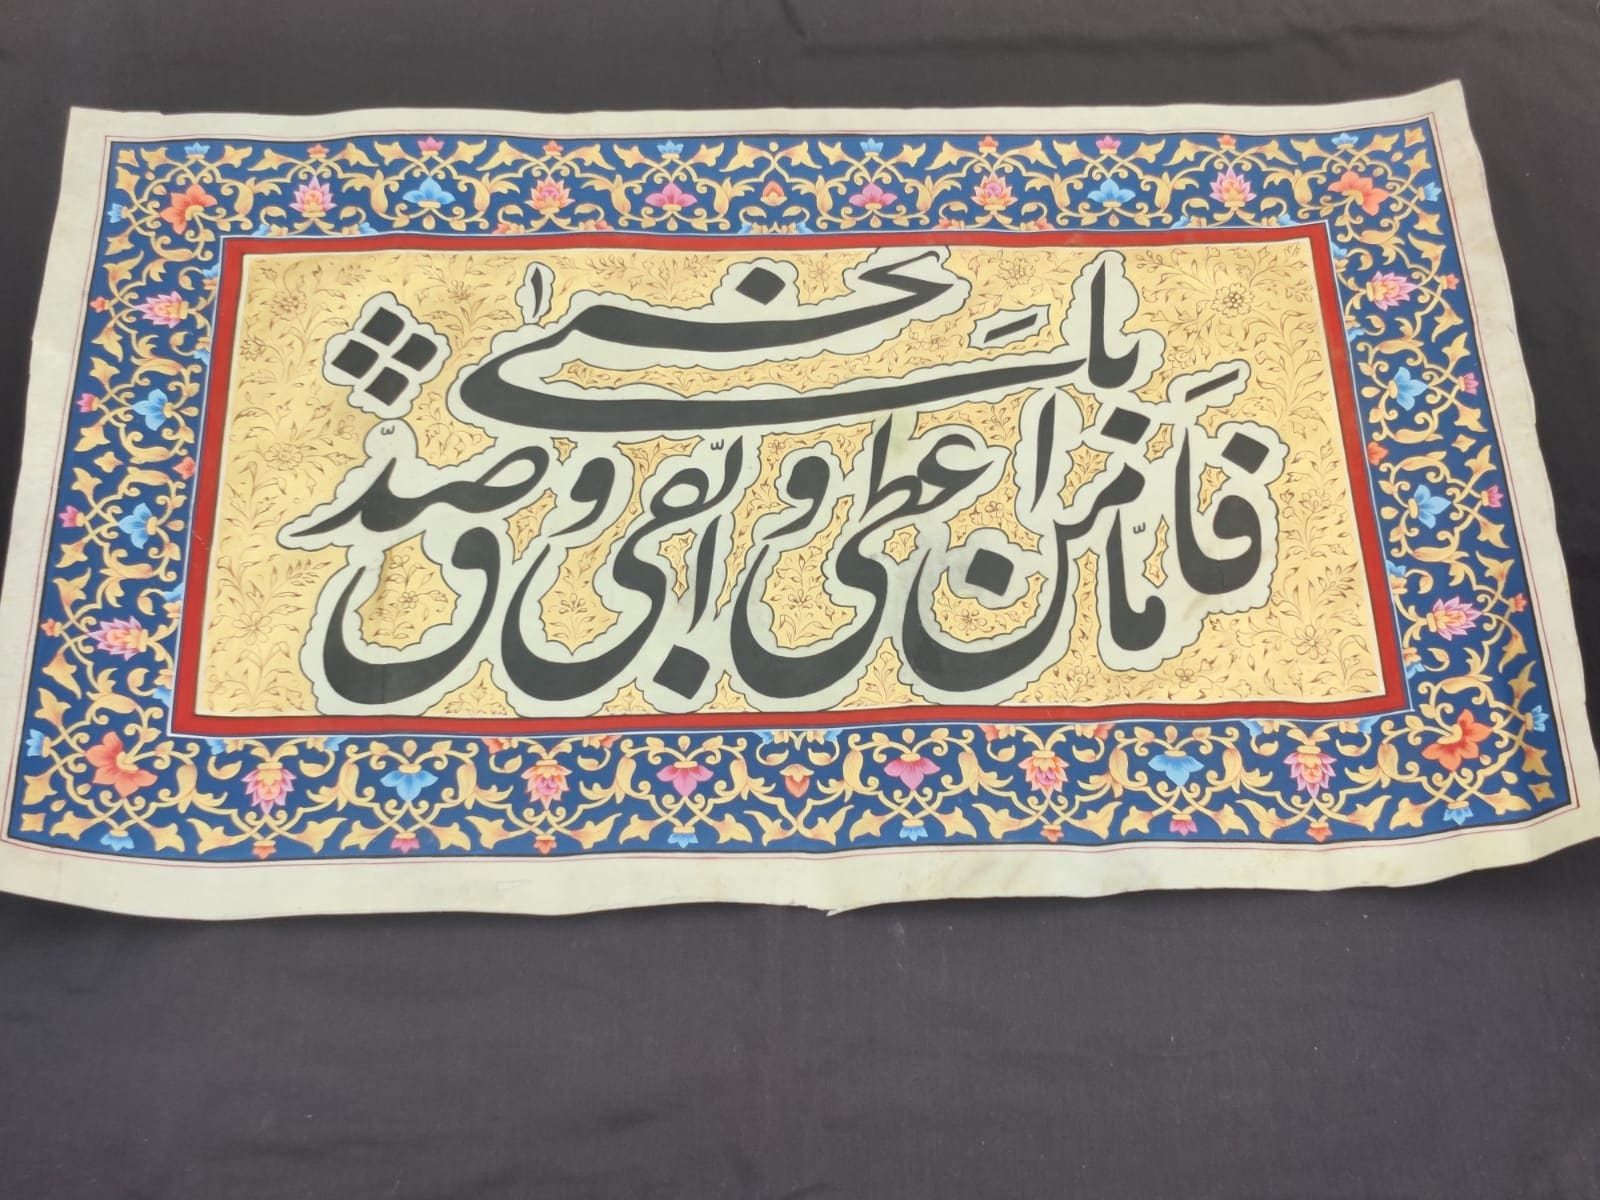 فَامّا من اعطى و اتّقى و صدّق
بالحسنى